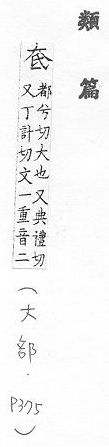 類篇
奃
都兮切大也又典禮切
又丁計切文一重音二
(大部．P375)